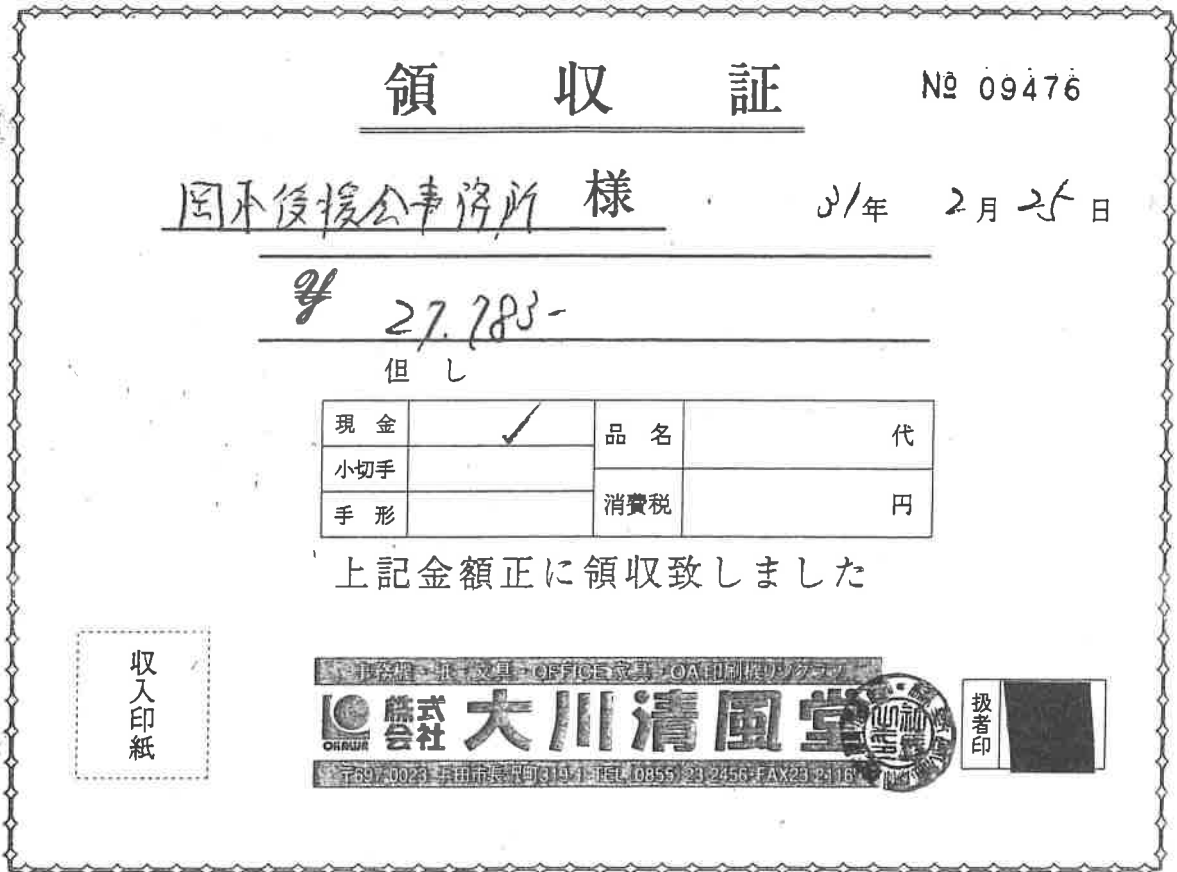 領収証 № 09476
岡本後援会事務所 様 31年 2月 25日
¥ 27.783-
但し
現金 ✓ 品名 代
小切手
消費税 円
手形
上記金額正に領収致しました
収入印紙
事務機・紙・文具・OFFICE文具・OA印刷機リソグラフ
OKAWA 株式会社 大川清風堂
〒697-0023 浜田市長沢町319-1 TEL(0855)23-2456・FAX23-2116
扱者印